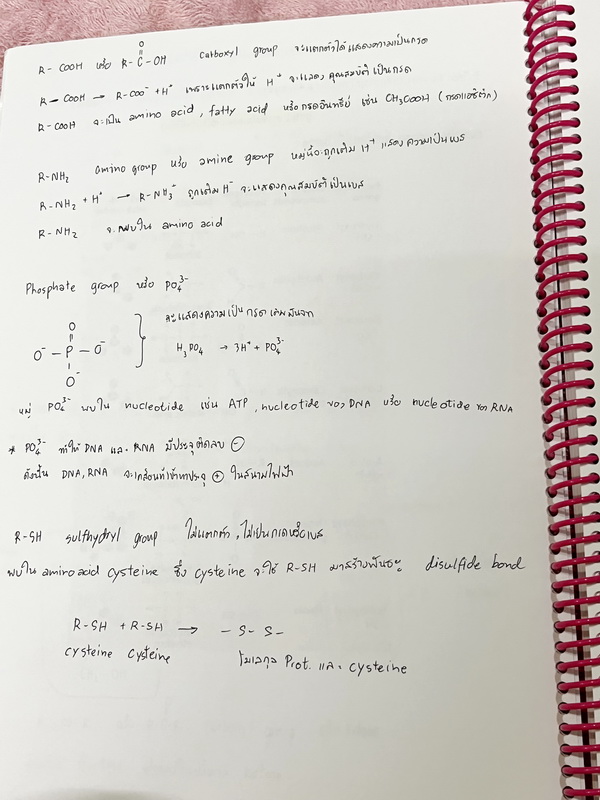 R - COOH หรือ R - C - OH Carboxyl group จะแตกตัวได้แสดงความเป็นกรด
O
R - COOH → R-COO⁻ + H⁺ เพราะแตกตัวให้ H⁺ จะแสดงคุณสมบัติเป็นกรด
R - COOH จะเป็น amino acid, fatty acid หรือกรดอินทรีย์ เช่น CH₃COOH (กรดแอซิติก)
R-NH₂ amino group หรือ amine group หมู่นี้จะถูกเติม H⁺ แสดงความเป็นเบส
R-NH₂ + H⁺ → R-NH₃⁺ ถูกเติม H⁻ จะแสดงคุณสมบัติเป็นเบส
R-NH₂ จะพบใน amino acid
Phosphate group หรือ PO₄³⁻
O
O⁻ - P - O⁻
O⁻
จะแสดงความเป็นกรด
H₃PO₄ → 3H⁺ + PO₄³⁻
หมู่ PO₄³⁻ พบใน nucleotide เช่น ATP, nucleotide ของ DNA หรือ nucleotide ของ RNA
* PO₄³⁻ ทำให้ DNA และ RNA มีประจุติดลบ ⊖
ดังนั้น DNA, RNA จะเคลื่อนที่เข้าหาประจุ ⊕ ในสนามไฟฟ้า
R-SH sulfhydryl group ไม่แตกตัว, ไม่เป็นกรดหรือเบส
พบใน amino acid cysteine ซึ่ง cysteine จะใช้ R-SH มาสร้างพันธะ disulfide bond
R-SH + R-SH → - S - S -
cysteine cysteine โมเลกุล Prot. และ cysteine